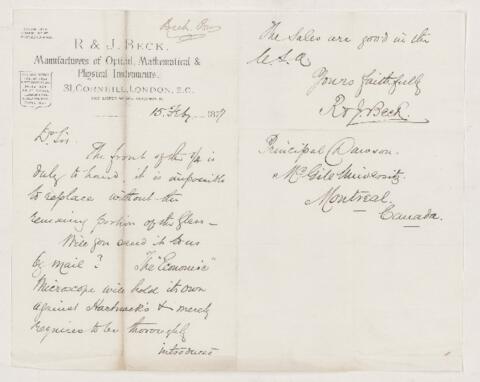 Beck Bros
R & J. BECK.
Manufacturers of Optical, Mathematical &
Physical Instruments.
31, CORNHILL, LONDON, E.C.
15 Feby 1877
Dr Sir
The front of the 1/4 is
duly to hand, it is impossible
to replace without the
remaining portion of the Glass—
Will you send it to us
by mail? The "Economic"
Microscope will hold its own
against Hartnack's & merely
requires to be thoroughly
introduced
The sales are good in the
U.S.A
Yours faithfully
R & J Beck.
Principal Dawson.
McGill University
Montreal.
Canada.